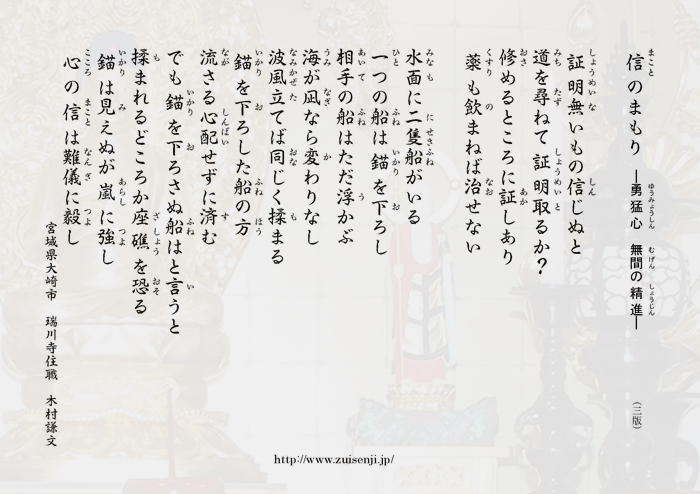 信のまもり ―勇猛心 無間の精進―
(三版)
証明無いもの信じぬと
道を尋ねて証明取るか?
修めるところに証しあり
薬も飲まねば治せない
水面に二隻船がいる
一つの船は錨を下ろし
相手の船はただ浮かぶ
海が凪なら変わりなし
波風立てば同じく揉まる
錨を下ろした船の方
流さる心配せずに済む
でも錨を下ろさぬ船はと言うと
揉まれるどころか座礁を恐る
錨は見えぬが嵐に強し
心の信は難儀に毅し
宮城県大崎市 瑞川寺住職 木村謙文
http://www.zuisenji.jp/